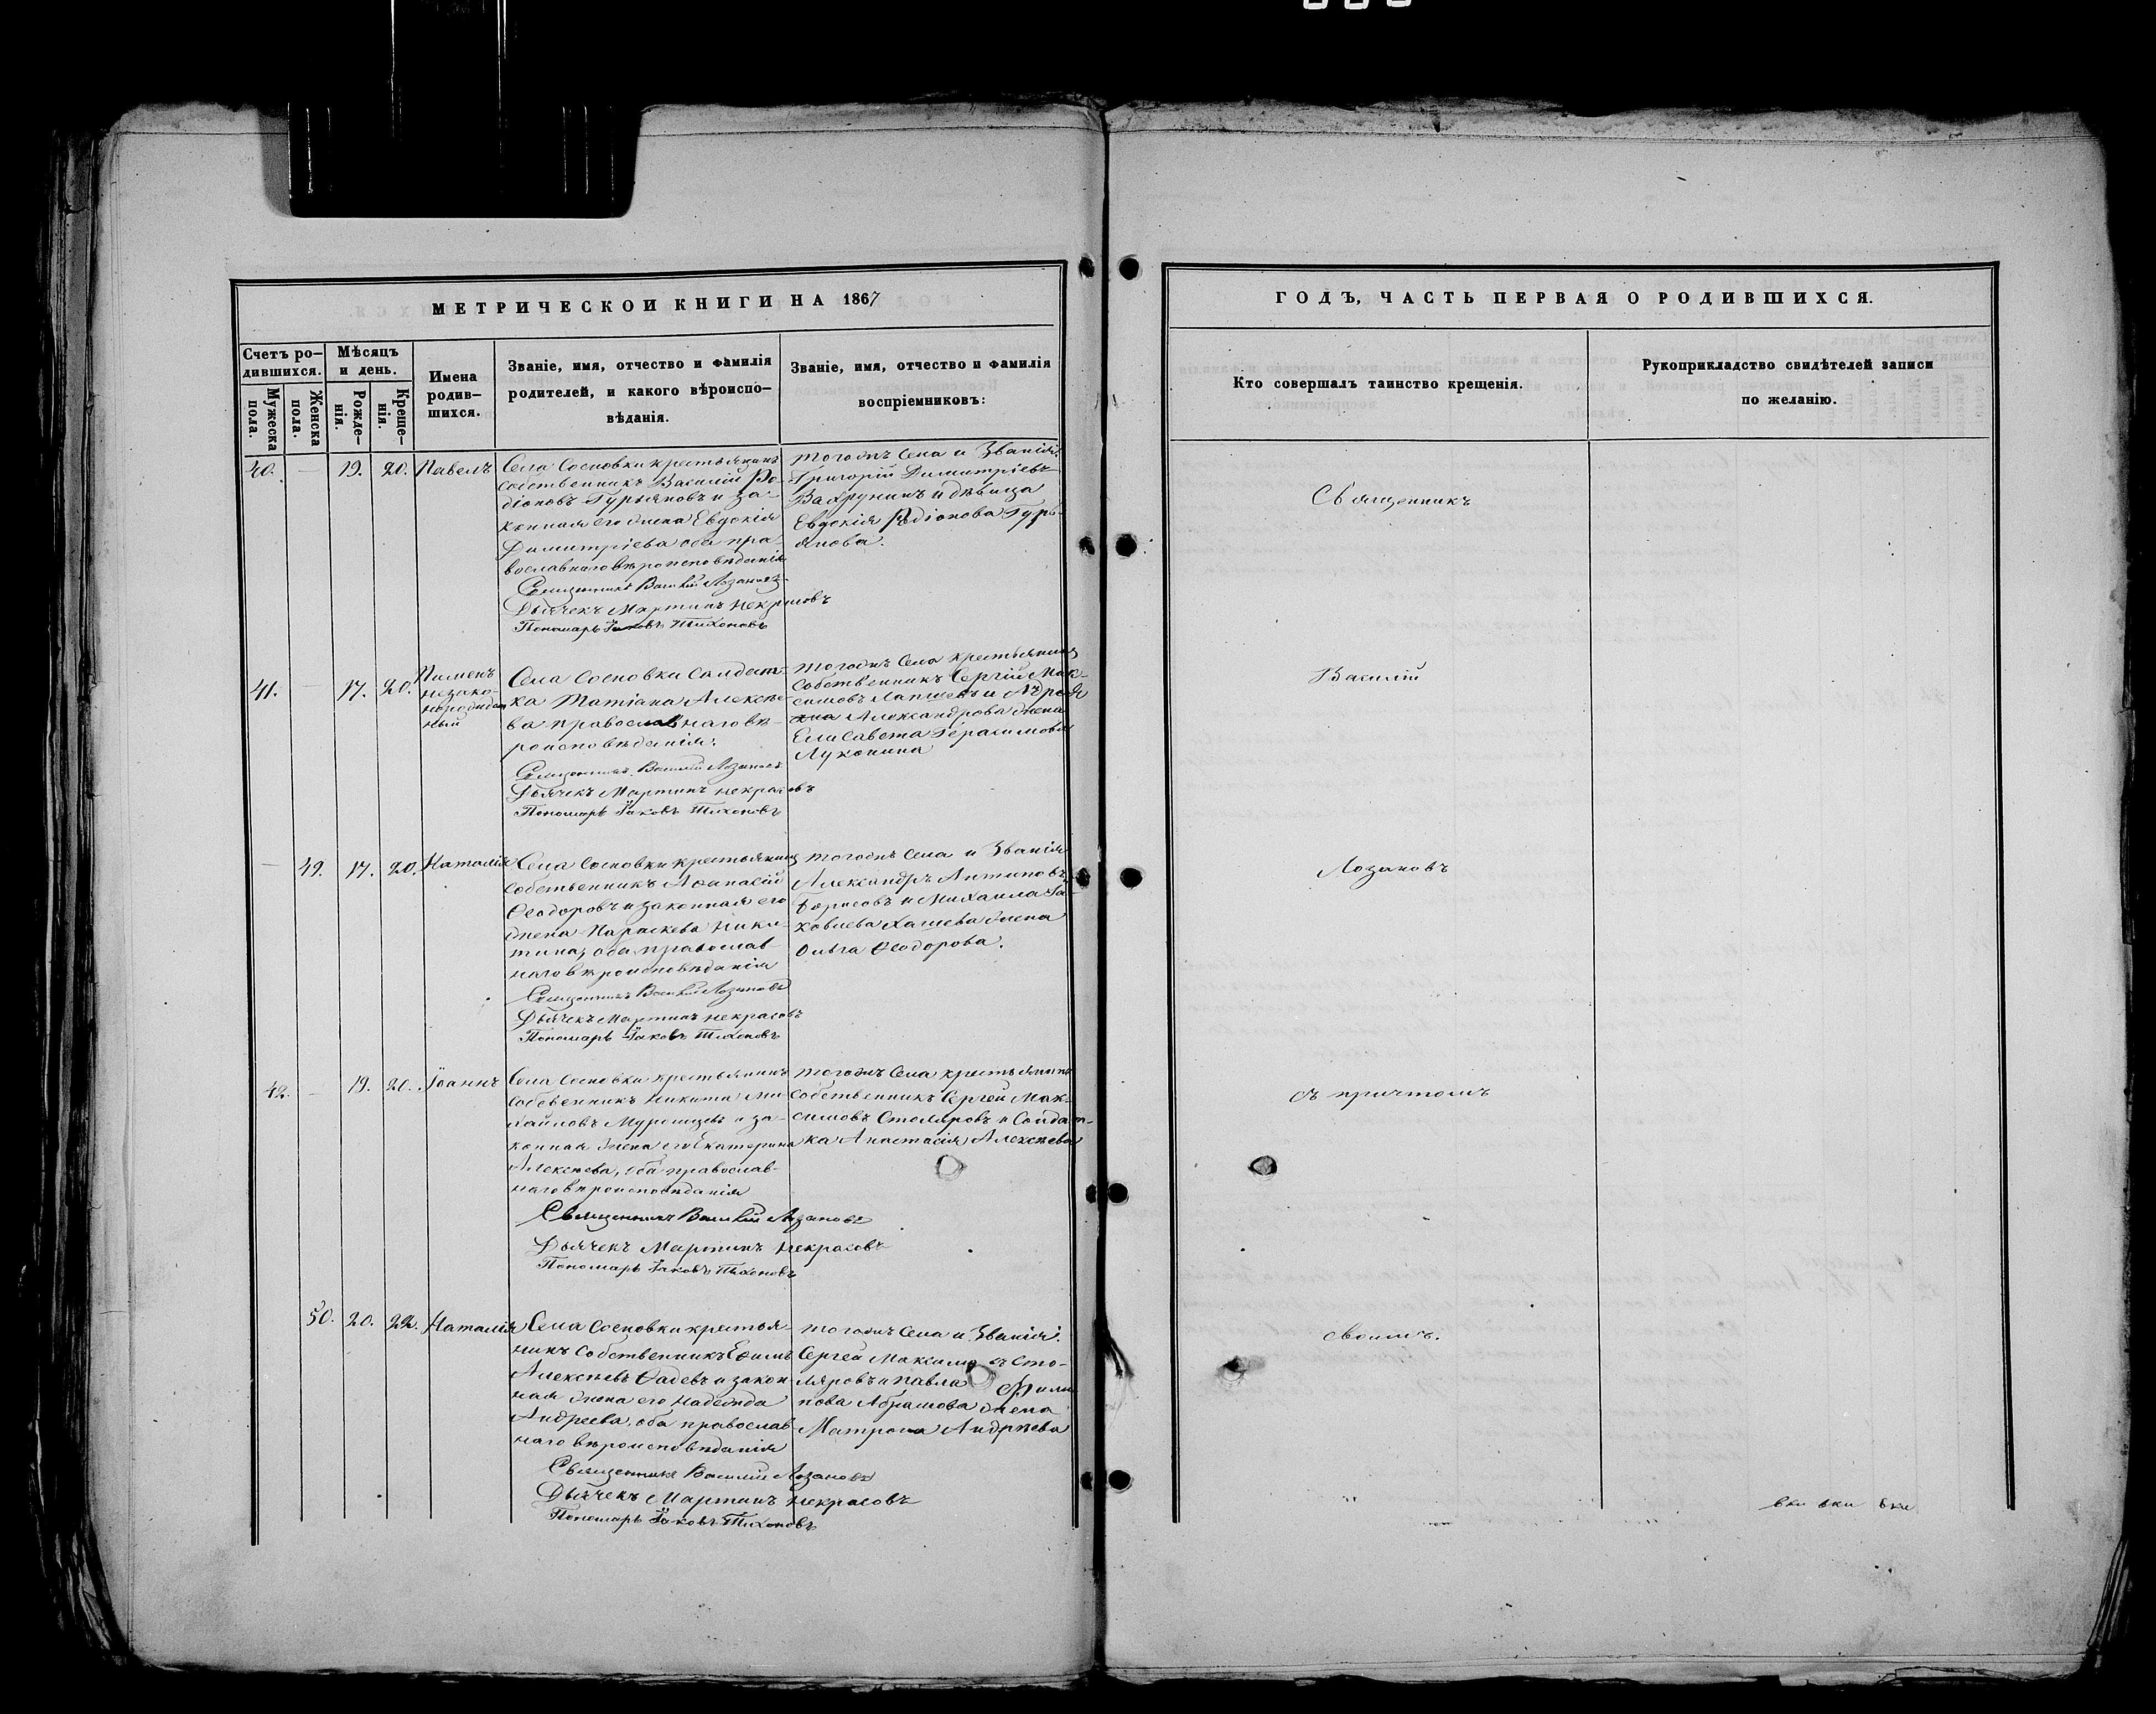 МЕТРИЧЕСКОЙ КНИГИ НА 1867
Счетъ ро-
дившихся.
Мѣсяцъ
и день.
Мужеска
пола.
Женска
пола.
Рожде-
нія.
Креще-
нія.
Имена
родив-
шихся.
Званіе, имя, отчество и фамилія
родителей, и какого вѣроиспо-
вѣданія.
Званіе, имя, отчество и фамилія
воспріемниковъ:
40. — 19. 20. Павелъ
Села Сосновки крестьянинъ
собственникъ Василій Ро-
діоновъ Гурьяновъ и за-
конная его жена Евдокія
Димитріева оба пра-
вославнаго вѣроисповѣданія
Священникъ Василій Лозановъ
Дьячекъ Мартинъ Некрасовъ
Пономарь Іаковъ Тихоновъ
тогожъ Села и Званія:
Григорій Димитріевъ
Вахрунинъ и дѣвица
Евдокія Родіонова Гурь-
янова.
41. — 17. 20. Пименъ
незако-
норожден
ный
Села Сосновки Солдат-
ка Татіана Алексѣе-
ва православнаго вѣ-
роисповѣданія:
Священникъ Василій Лозановъ
Дьячекъ Мартинъ Некрасовъ
Пономарь Іаковъ Тихоновъ
тогожъ Села крестьянинъ
Собственникъ Сергій Мак-
симовъ Лапшевъ и
Александрова жена
Елисавета Герасимова
Луконина
— 49. 17. 20. Наталія
Села Сосновки крестьянинъ
собственникъ Аѳанасій
Ѳеодоровъ и законная его
жена Параскева Ники-
тина, оба православ
наго вѣроисповѣданія
Священникъ Василій Лозановъ
Дьячекъ Мартинъ Некрасовъ
Пономарь Іаковъ Тихоновъ
тогожъ Села и Званія
Александръ Антиповъ
Борисовъ и Михаила Іа-
ковлева Хашева жена
Ольга Ѳеодорова.
42. — 19. 20. Іоаннъ
Села Сосновки крестьянинъ
Собсвенникъ Никита Ми-
хайловъ и за-
конная жена его Екатерина
Алексѣева, оба православ-
наго вѣроисповѣданія
Священникъ Василій Лозановъ
Дьячекъ Мартинъ Некрасовъ
Пономарь Іаковъ Тихоновъ
тогожъ Села крестьянинъ
Собственникъ Сергей Мак-
симовъ Столяровъ и Солдат-
ка Анастасія Алексѣева
50. 20. 22. Наталія
Села Сосновки крестья-
нинъ Собственникъ Ефимъ
Алексѣевъ Фадѣевъ и закон-
ная жена его Надежда
Андреева, оба православ-
наго вѣроисповѣданія
Священникъ Василій Лозановъ
Дьячекъ Мартинъ Некрасовъ
Пономарь Іаковъ Тихоновъ
тогожъ Села и Званія:
Сергей Максимовъ Сто-
ляровъ и Павла Фили
пова Абрамова жена
Матрона Андрѣева
ГОДЪ, ЧАСТЬ ПЕРВАЯ О РОДИВШИХСЯ.
Кто совершалъ таинство крещенія.
Рукоприкладство свидѣтелей записи
по желанію.
Священникъ
Василій
Лозановъ
съ причтомъ
своимъ.